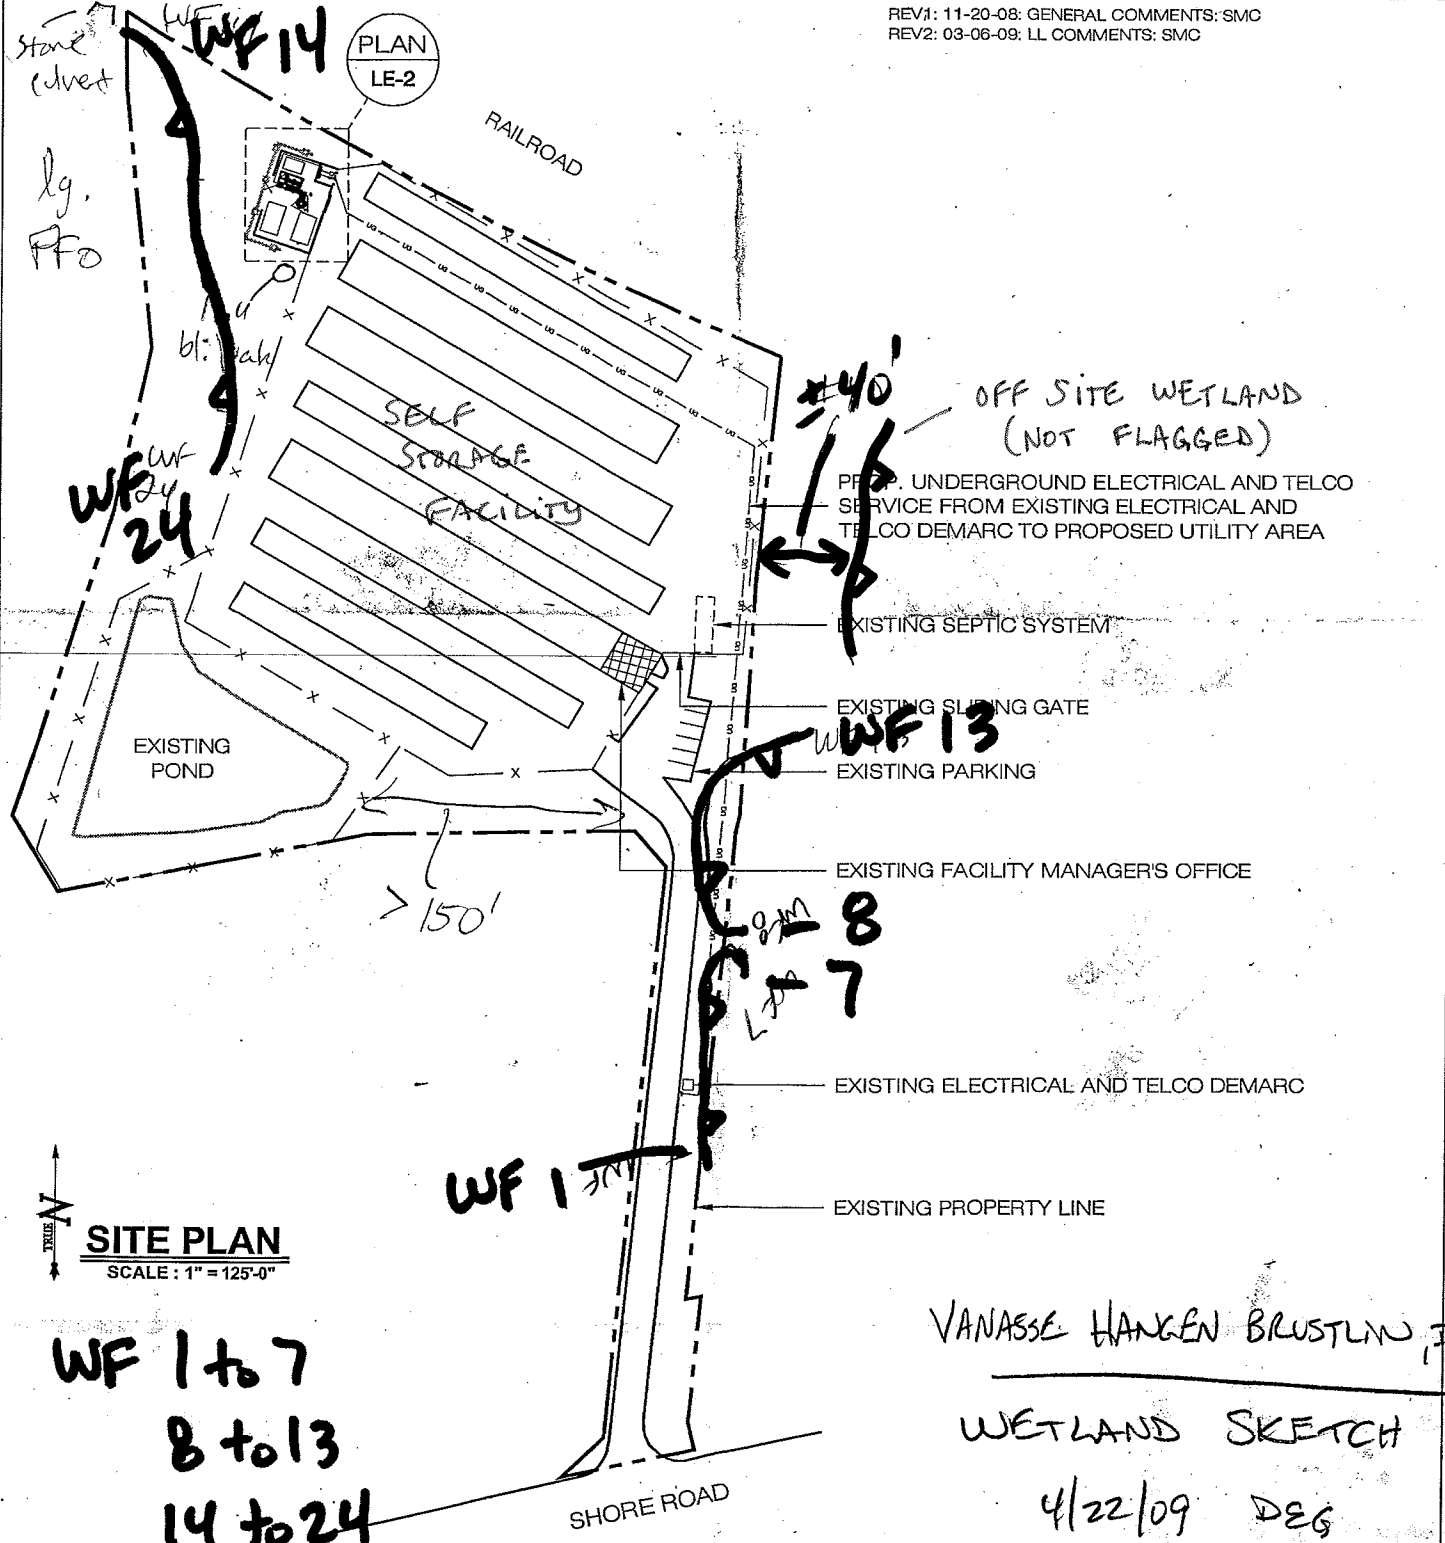 REV1: 11-20-08: GENERAL COMMENTS: SMC
REV2: 03-06-09: LL COMMENTS: SMC
Stone
culvert
WF 14
PLAN
LE-2
RAILROAD
lg.
PFO
SELF
STORAGE
FACILITY
±40'
OFF SITE WETLAND
(NOT FLAGGED)
PROP. UNDERGROUND ELECTRICAL AND TELCO
SERVICE FROM EXISTING ELECTRICAL AND
TELCO DEMARC TO PROPOSED UTILITY AREA
WF
24
WF
24
EXISTING SEPTIC SYSTEM
EXISTING SLIDING GATE
WF 13
EXISTING
POND
EXISTING PARKING
EXISTING FACILITY MANAGER'S OFFICE
> 150'
8
7
EXISTING ELECTRICAL AND TELCO DEMARC
WF 1
EXISTING PROPERTY LINE
TRUE
N
SITE PLAN
SCALE : 1" = 125'-0"
WF 1 to 7
8 to 13
14 to 24
SHORE ROAD
VANASSE HANGEN BRUSTLIN,
WETLAND SKETCH
4/22/09 DEG